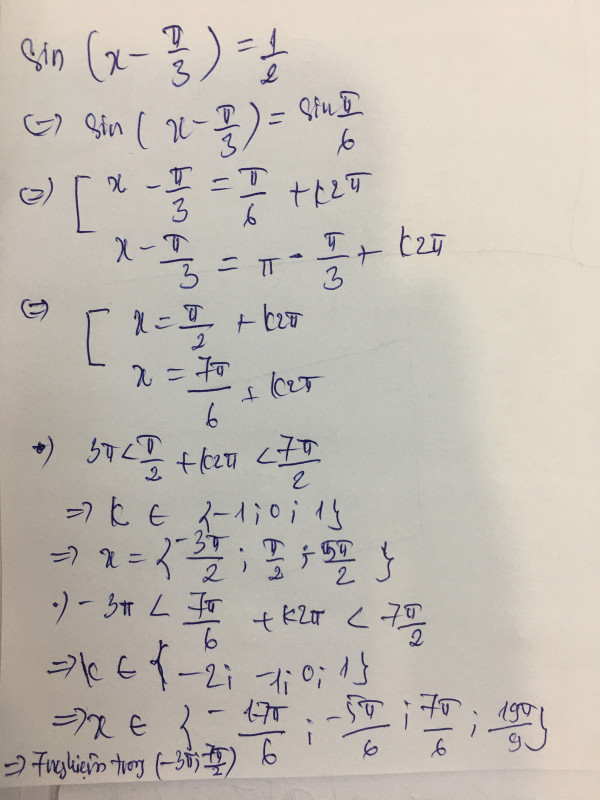 sin (x - π/3) = 1/2
(=) sin( x - π/3) = sin π/6
(=) [ x - π/3 = π/6 + k2π
x - π/3 = π - π/3 + k2π
(=) [ x = π/2 + k2π
x = 7π/6 + k2π
•) 3π < π/2 + k2π < 7π/2
=> k ∈ {-1; 0; 1}
=> x = {-3π/2; π/2; 5π/2}
•) -3π < 7π/6 + k2π < 7π/2
=> k ∈ {-2; -1; 0; 1}
=> x ∈ {-17π/6; -5π/6; 7π/6; 19π/9}
=> 7 nghiệm trong (-3π; 7π/2)